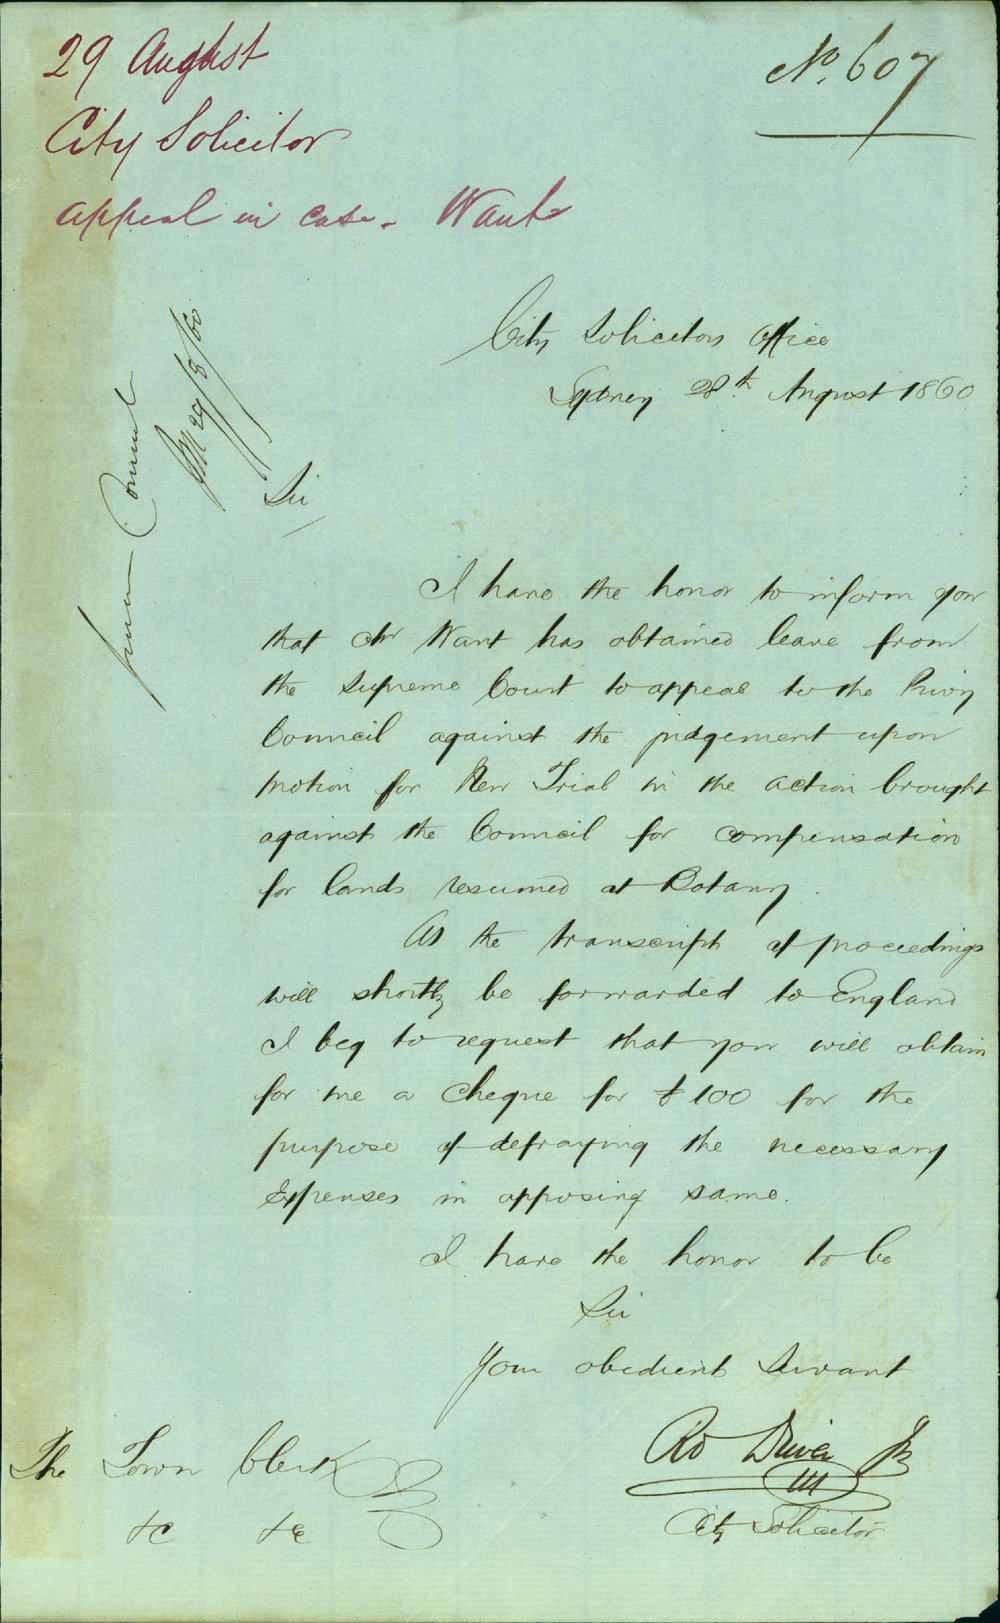 29 August
City Solicitor
Appeal in case - Want
No. 607
City Solicitors Office
Sydney 28th. August 1860
Council
29/8/60
Sir
I have the honor to inform you
that Mr Want has obtained leave from
the Supreme Court to appeal to the Privy
Council against the judgement upon
motion for New Trial in the action brought
against the Council for compensation
for lands resumed at Botany.
As the transcript of proceedings
will shortly be forwarded to England
I beg to request that you will obtain
for me a cheque for £100 for the
purpose of defraying the necessary
Expenses in opposing same.
I have the honor to be
Sir
Your obedient Servant
Rd Driver Jr
City Solicitor
The Town Clerk
&c &c